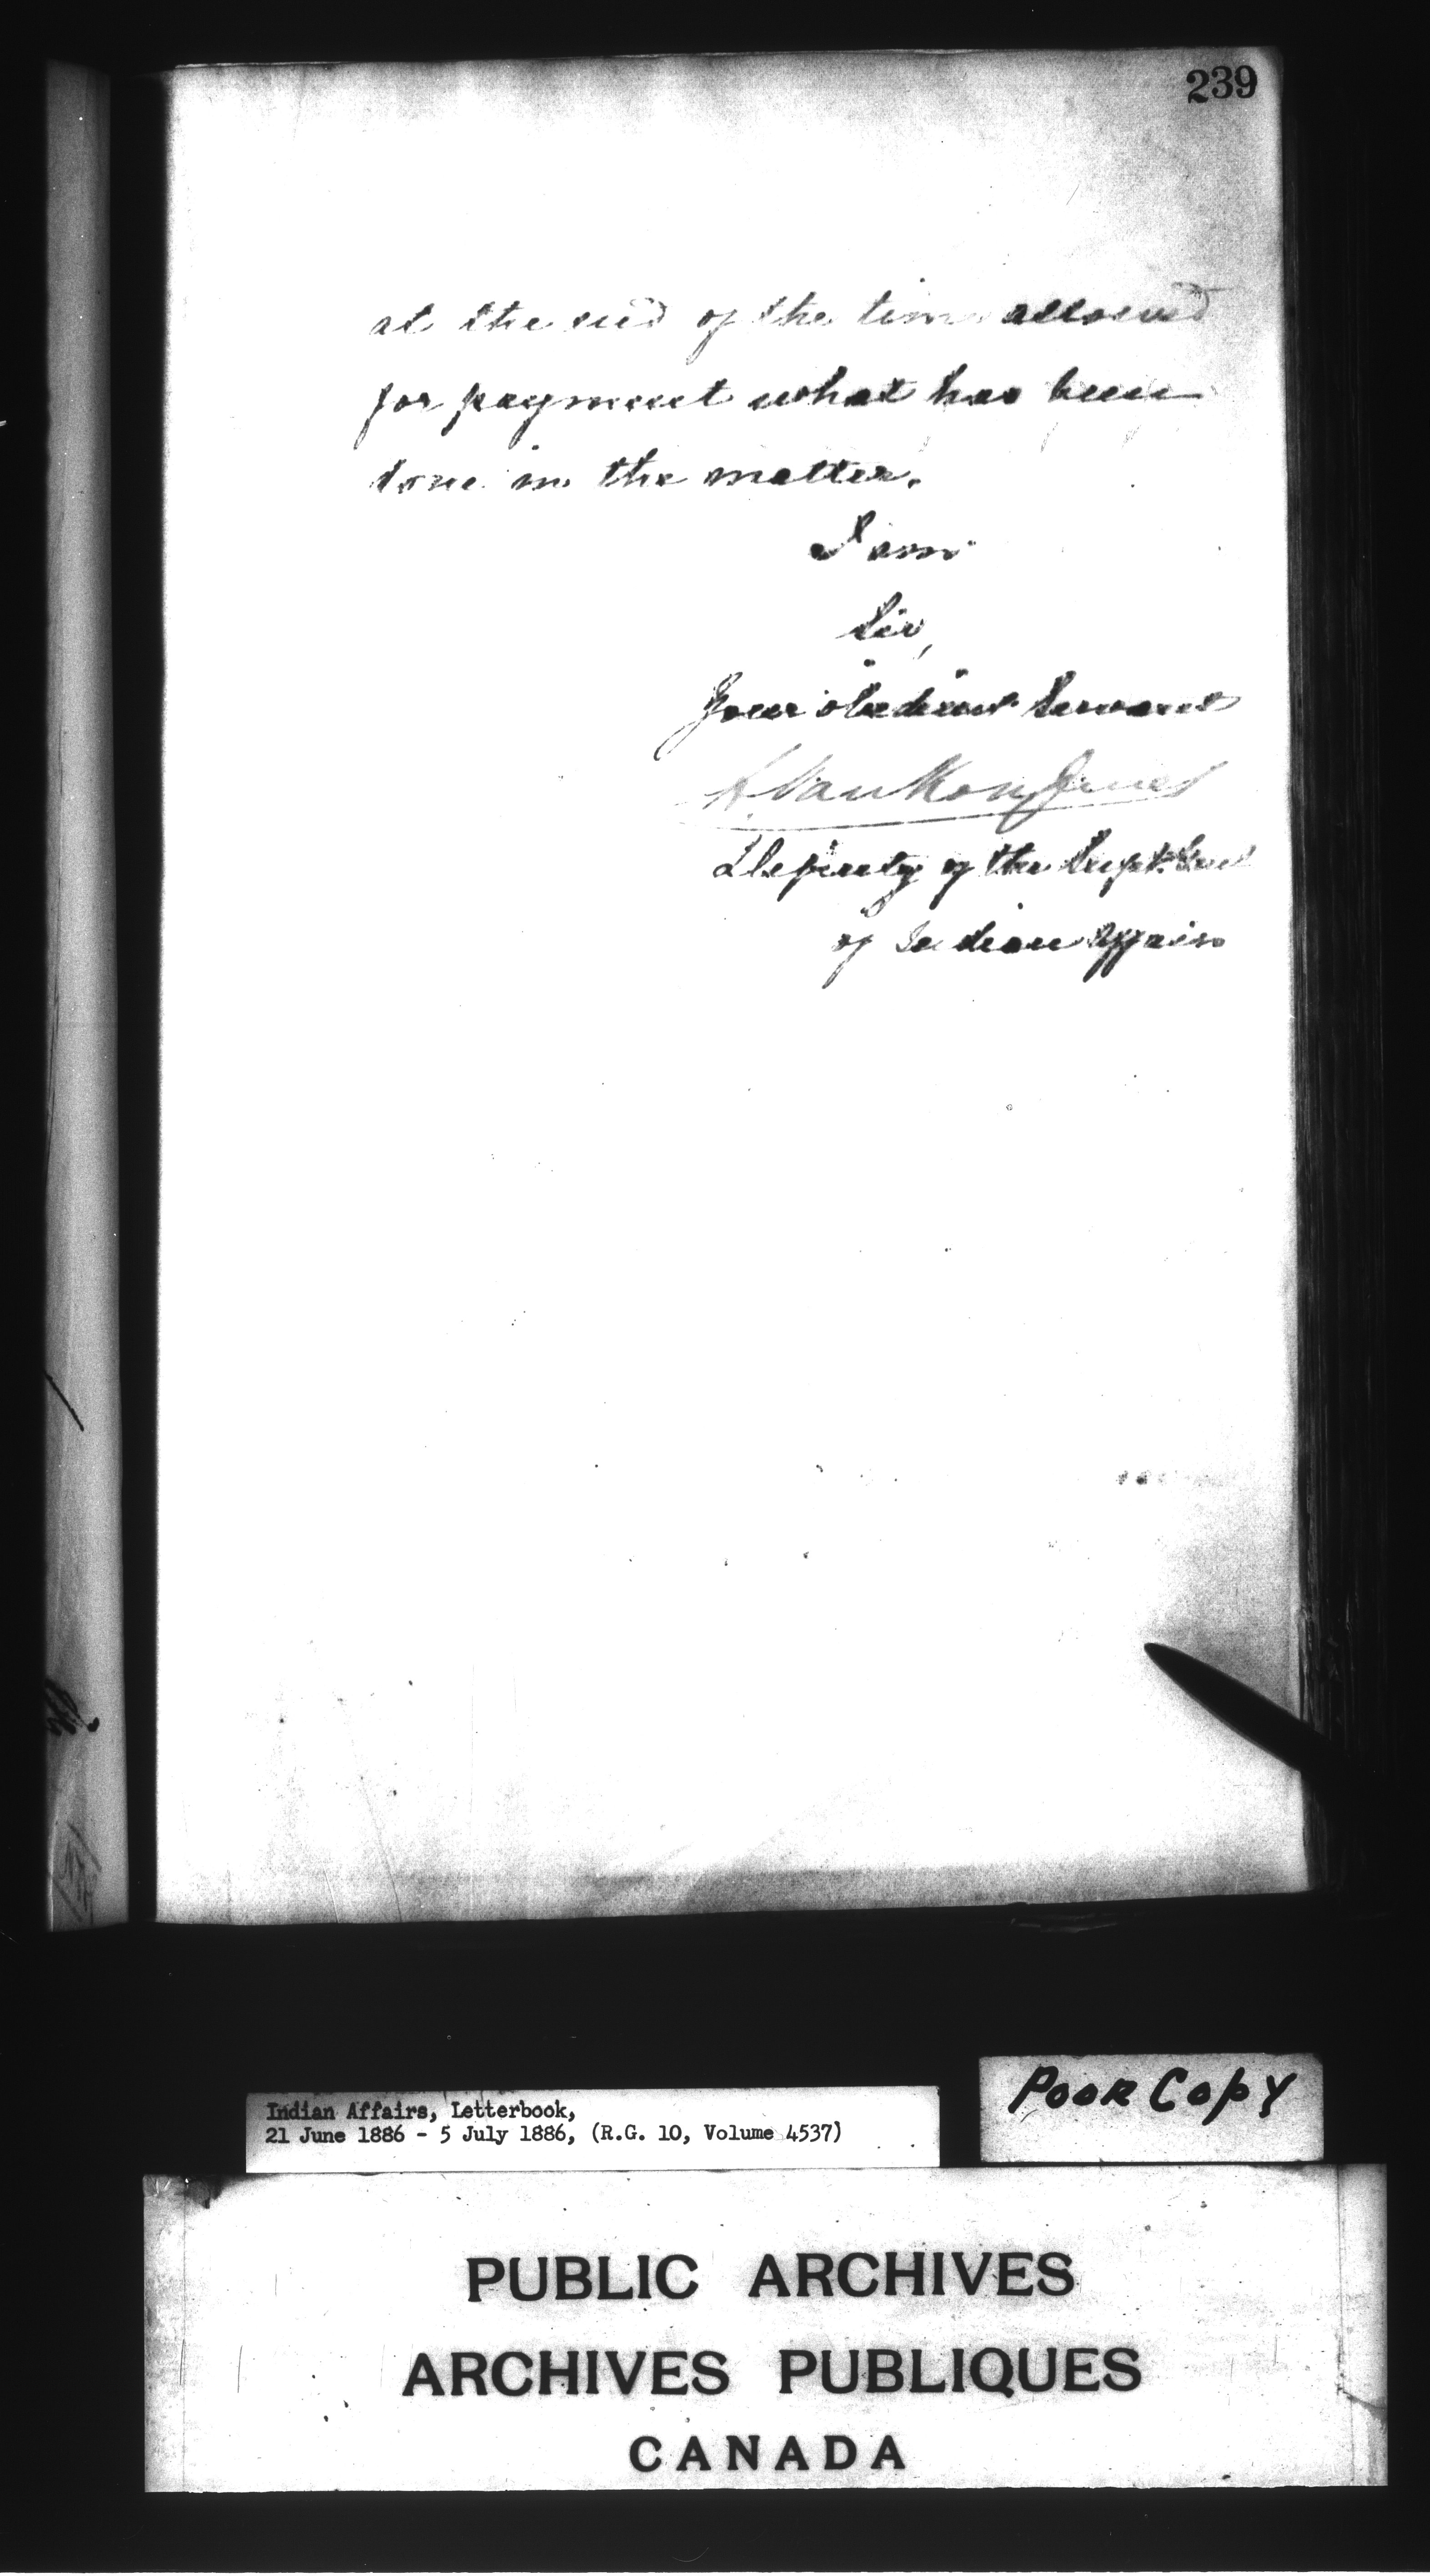 239
at the end of the time allowed
for payment what has been
done in the matter.
I am
Sir,
Your obedient Servant
Deputy of the Supt. Genl
of Indian Affairs
Poor Copy
Indian Affairs, Letterbook,
21 June 1886 - 5 July 1886, (R.G. 10, Volume 4537)
PUBLIC ARCHIVES
ARCHIVES PUBLIQUES
CANADA